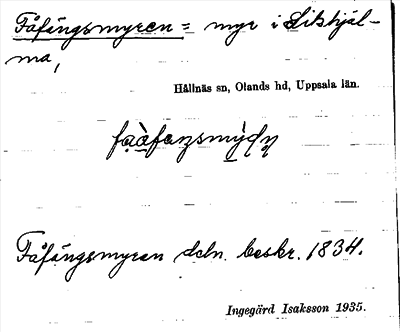 Fåfängsmyren = myr i Sikhjäl-
ma,
Hållnäs sn, Olands hd, Uppsala län.
Fåfängsmyren dcln. beskr. 1834.
Ingegärd Isaksson 1935.